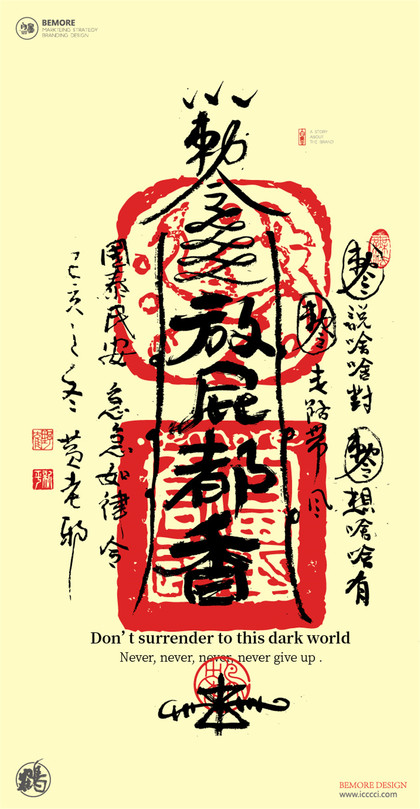 BEMORE
MARKETING STRATEGY
BRANDING DESIGN
A STORY
ABOUT
THE BRAND
敕令
放屁都香
敕令說啥啥對
敕令想啥啥有
敕令走路帶風
國泰民安 急急如律令
己亥之冬 黄老邪
Don't surrender to this dark world
Never, never, never, never give up .
鶴
BEMORE DESIGN
www.icccci.com